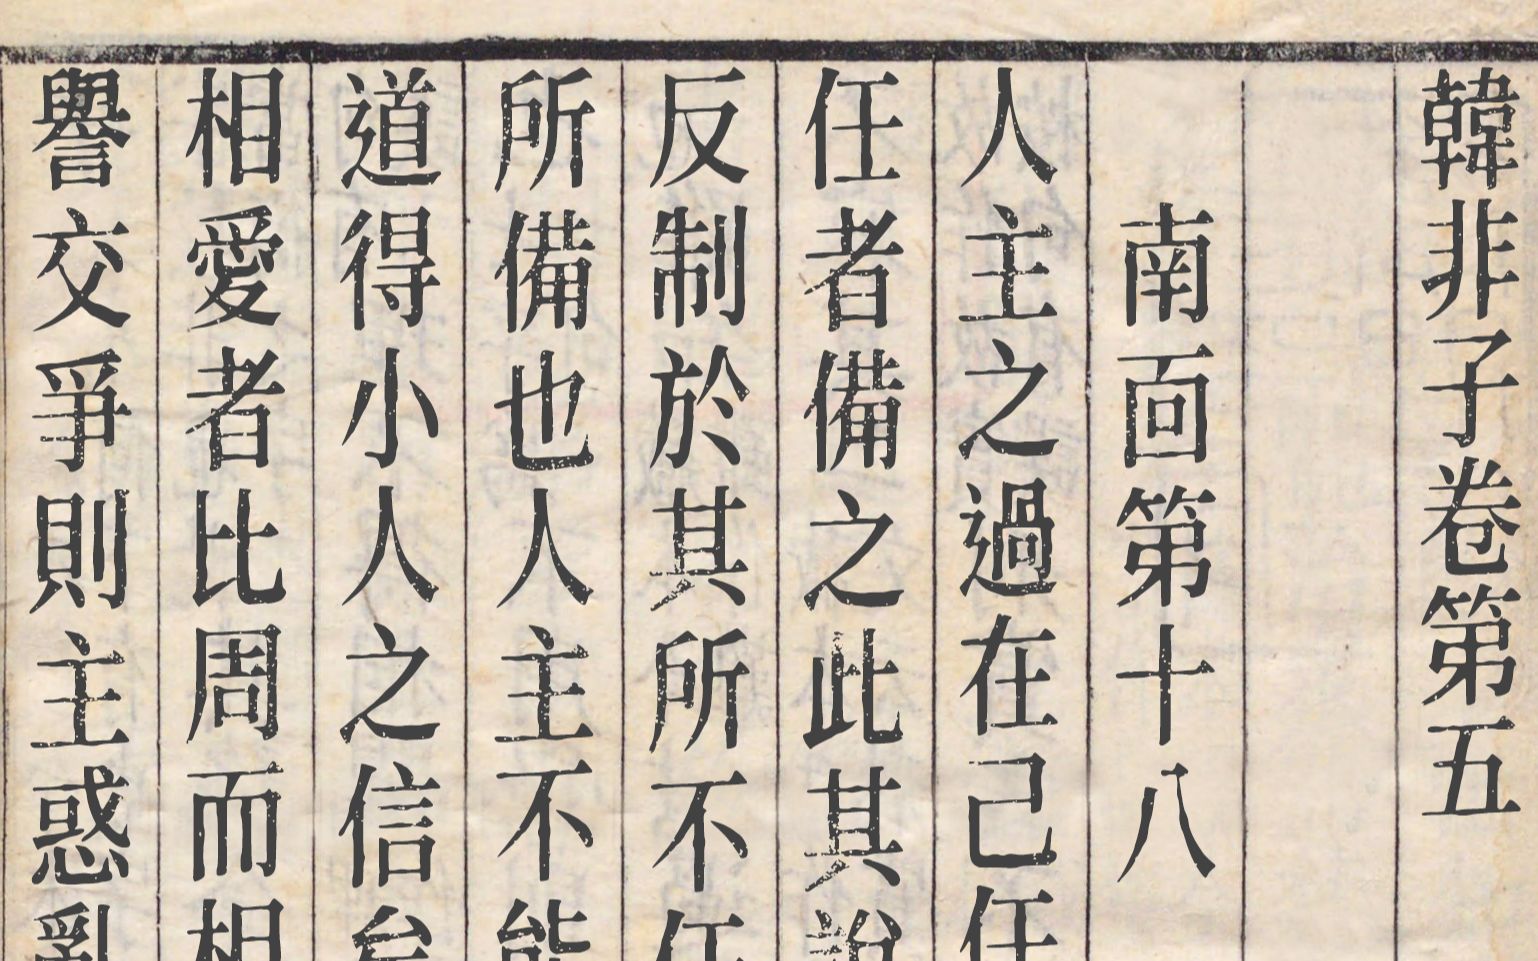 韓非子卷第五
南面第十八
人主之過在己任
任者備之此其說
反制於其所不任
所備也人主不能
道得小人之信矣
相愛者比周而相
譽交爭則主惑亂